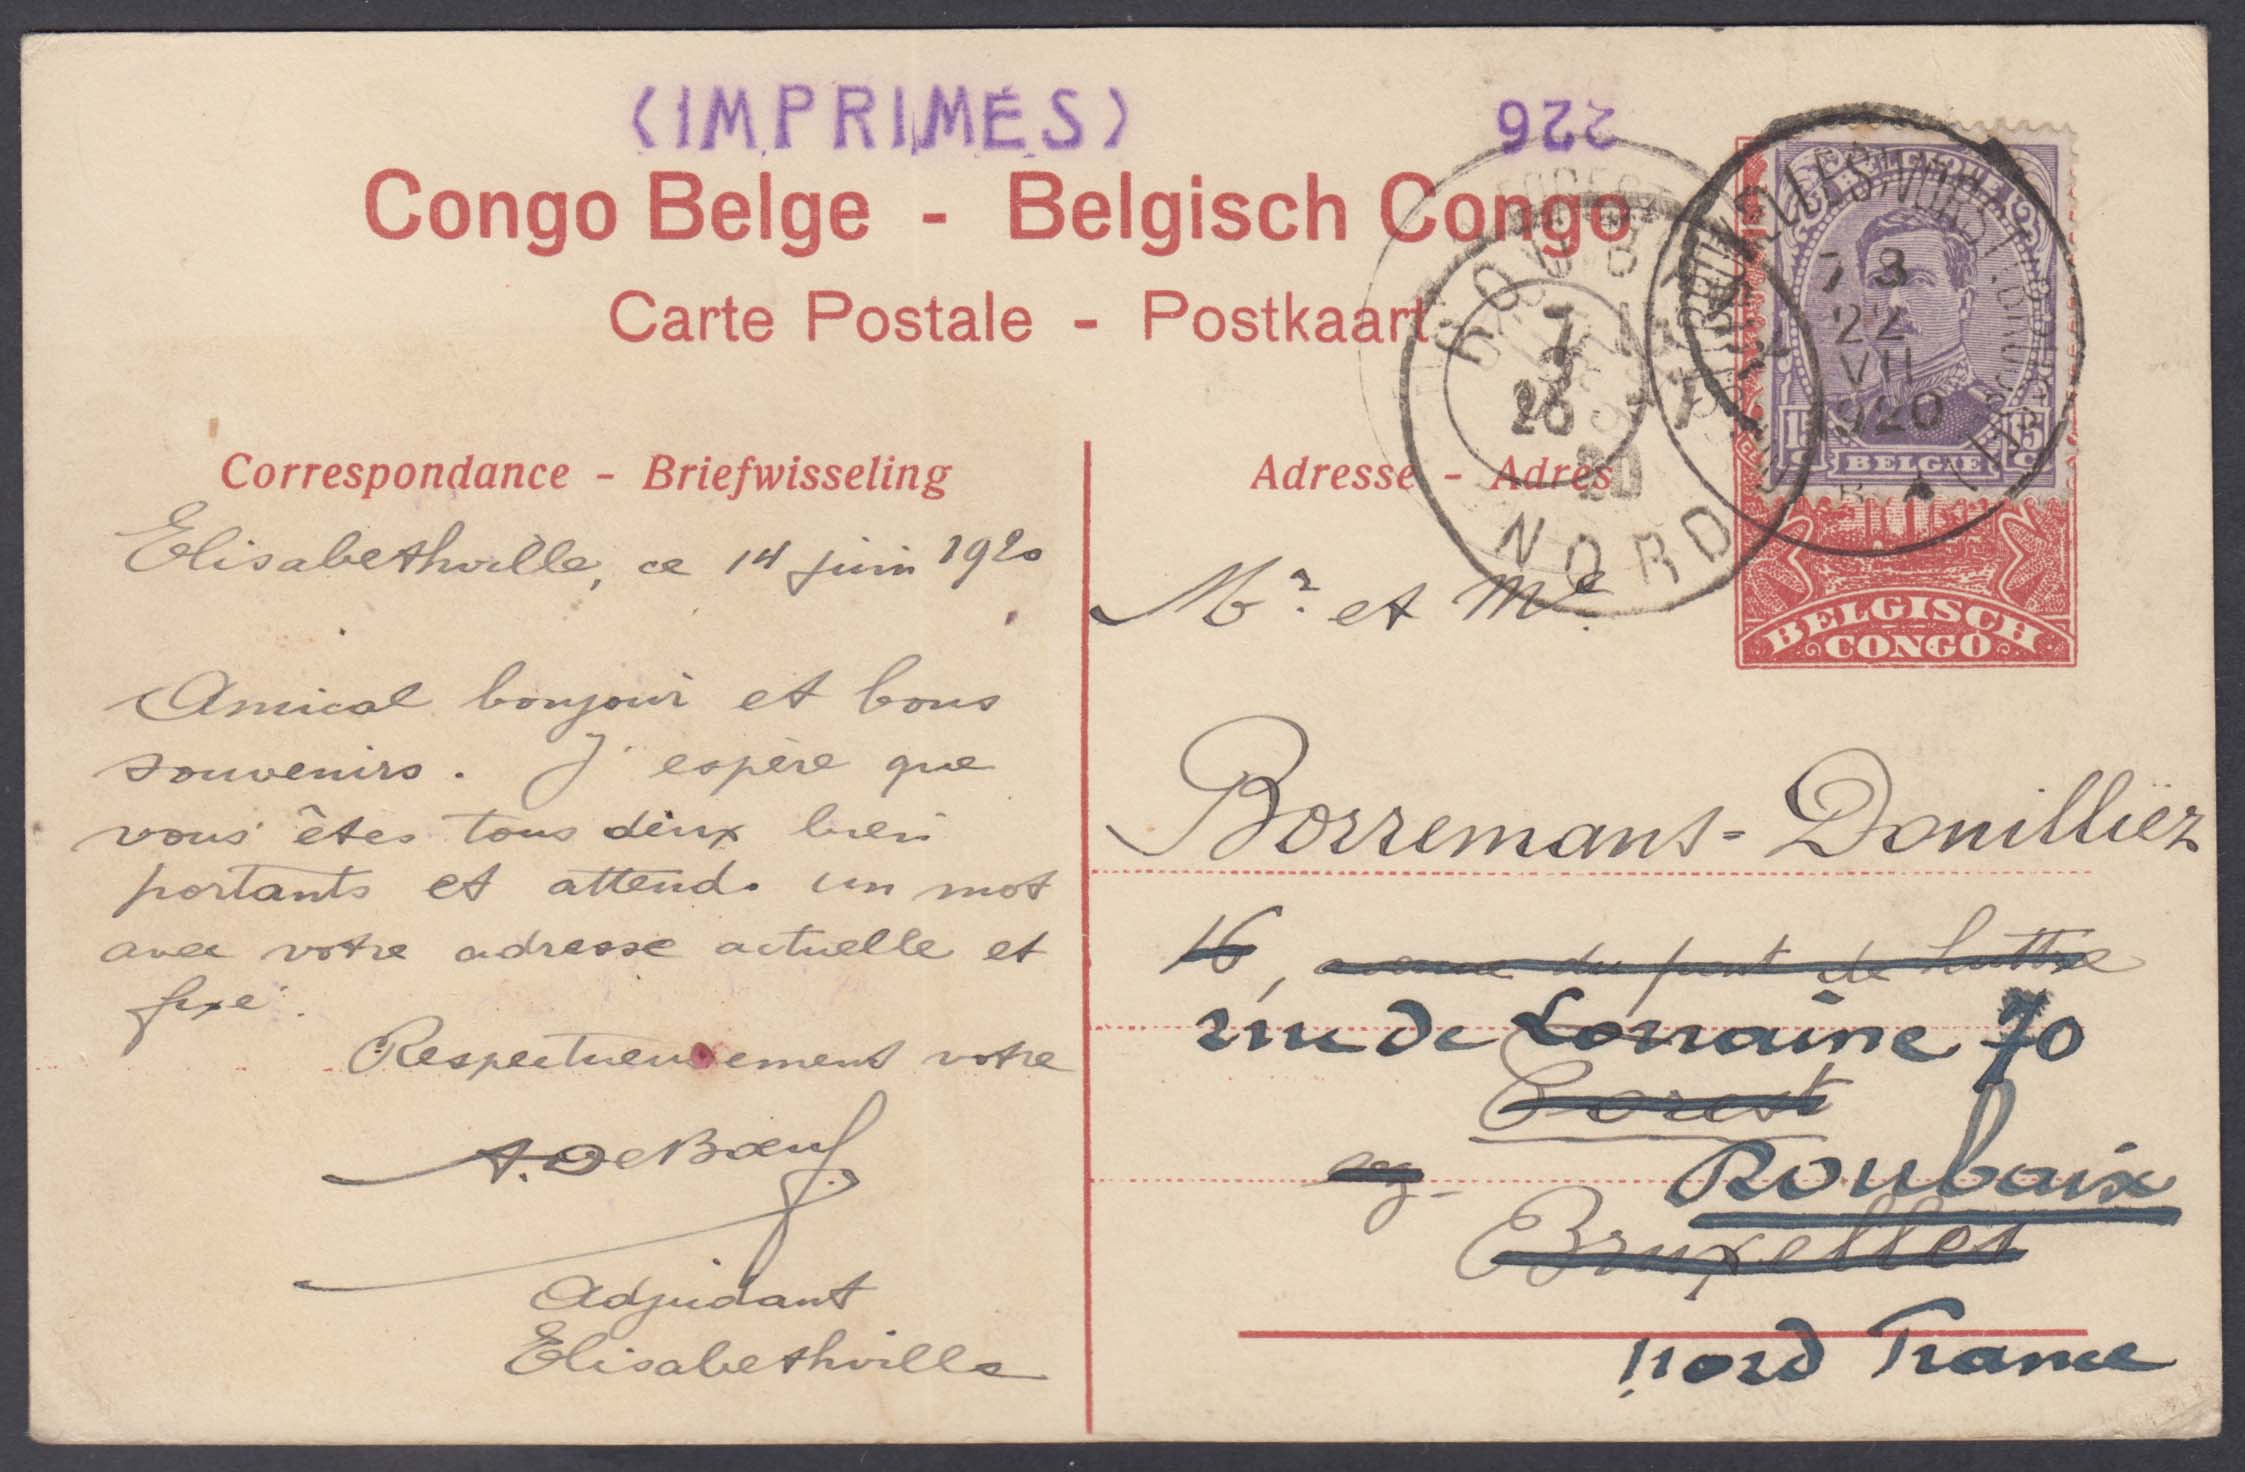 (IMPRIMÉS)
226
Congo Belge - Belgisch Congo
Carte Postale - Postkaart
BELGIQUE
15 c BELGIË 15 c
BELGISCH
CONGO
7-8
22
VII
1920
ROUBAIX
7
20
NORD
Correspondance - Briefwisseling
Elisabethville, ce 14 juin 1920
Amical bonjour et bons
souvenirs. J'espère que
vous êtes tous deux bien
portants et attends un mot
avec votre adresse actuelle et
fixe.
Respectueusement votre
A. De Bœuf
Adjudant
Elisabethville
Adresse - Adres
Mr. et Me.
Borremans-Douilliez
16, avenue du pont de Luttre
rue de Lorraine 70
Forest
Roubaix
Bruxelles
Nord France